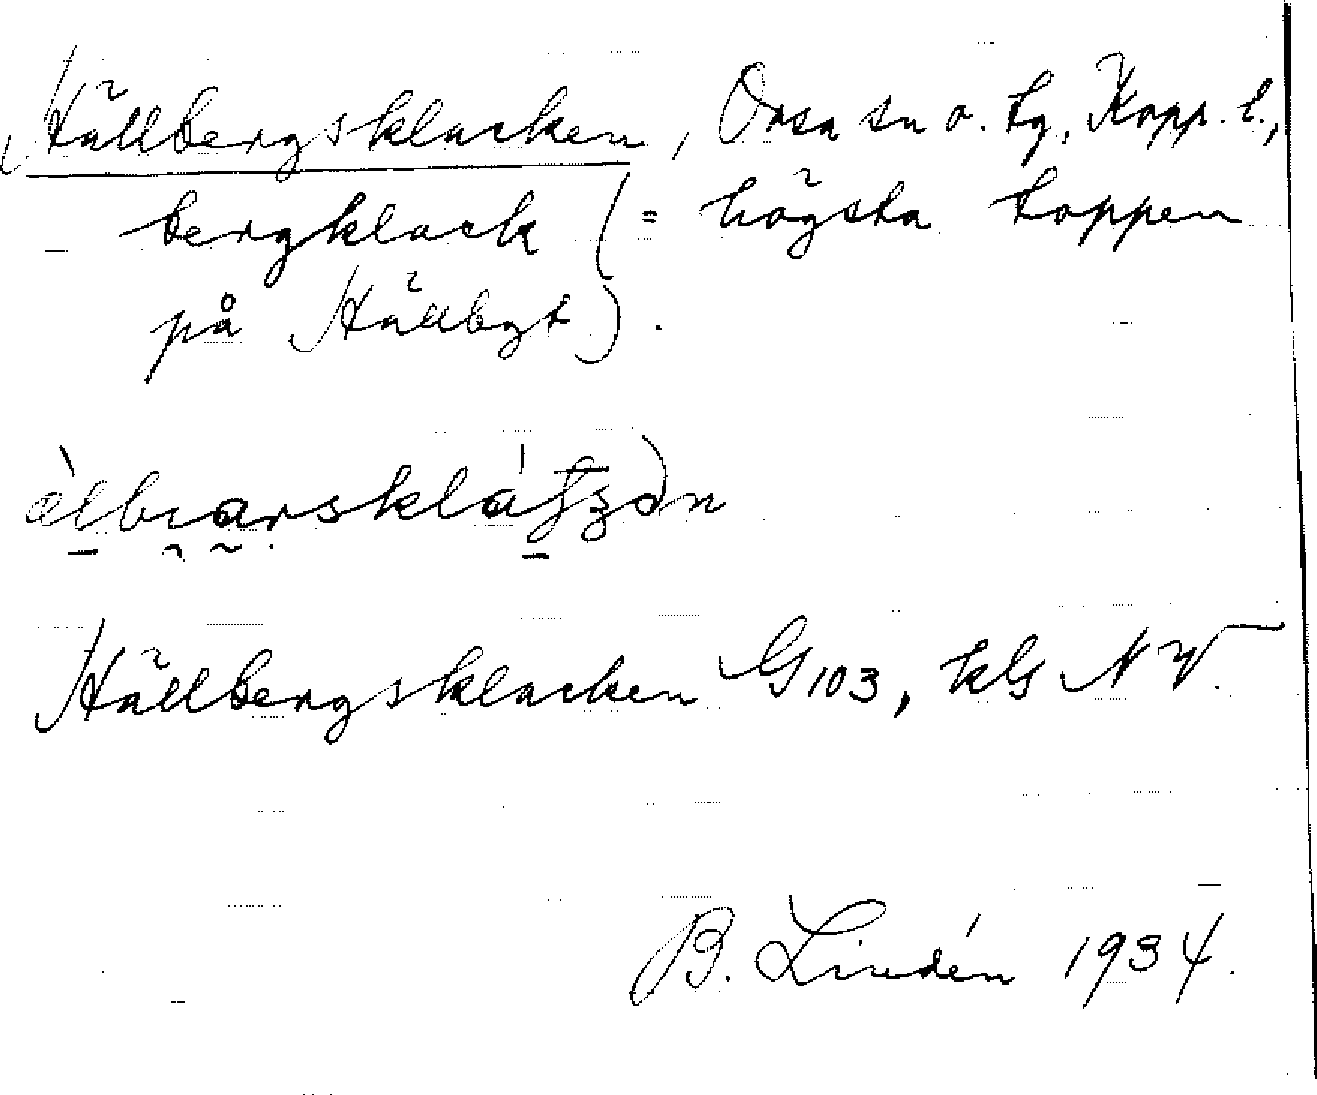 Hällbergsklacken, Orsa sn o. tg, Kopp. l.,
bergklack (= högsta toppen
på Hällbgt).
Hällbergsklacken G103, kG NV.
B. Lindén 1934.